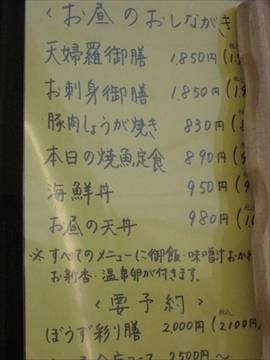 〈お昼のおしながき
天婦羅御膳 1,850円(税込
お刺身御膳 1,850円(税込
豚肉しょうが焼き 830円(
本日の焼魚定食 890円(
海鮮丼 950円(
お昼の天丼 980円(
※すべてのメニューに御飯・味噌汁おかわり
お新香・温泉卵が付きます。
〈要予約〉
ぼうず彩り膳 2,000円(税込2,100円)
2500円〜